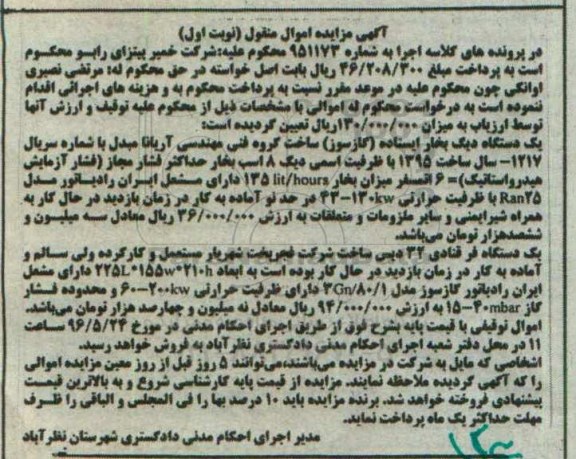 آگهی مزایده اموال منقول (نوبت اول)
در پرونده های کلاسه اجرا به شماره ۹۵۱۱۷۳ محکوم علیه:شرکت خمیر پیتزای رابو محکوم
است به پرداخت مبلغ ۴۶/۲۰۸/۳۰۰ ریال بابت اصل خواسته در حق محکوم له: مرتضی نصیری
اوانکی چون محکوم علیه در موعد مقرر نسبت به پرداخت محکوم به و هزینه های اجرائی اقدام
ننموده است به درخواست محکوم له اموالی با مشخصات ذیل از محکوم علیه توقیف و ارزش آنها
توسط ارزیاب به میزان ۱۳۰/۰۰۰/۰۰۰ریال تعیین گردیده است:
یک دستگاه دیگ بخار ایستاده (گازسوز) ساخت گروه فنی مهندسی آریانا مبدل با شماره سریال
۱۲۱۷- سال ساخت ۱۳۹۵ با ظرفیت اسمی دیگ ۸ اسب بخار حداکثر فشار مجاز (فشار آزمایش
هیدرواستاتیک)= ۶ اتمسفر میزان بخار ۱۳۵ lit/hours دارای مشعل ایران رادیاتور مدل
Ran۲۵ با ظرفیت حرارتی ۴۳-۱۳۰kw در حد نو آماده به کار در زمان بازدید در حال کار به
همراه شیرایمنی و سایر ملزومات و متعلقات به ارزش ۳۶/۰۰۰/۰۰۰ ریال معادل سه میلیون و
ششصدهزار تومان می‌باشد.
یک دستگاه فر قنادی ۳۲ دیس ساخت شرکت فجرپخت شهریار مستعمل و کارکرده ولی سالم و
آماده به کار در زمان بازدید در حال کار بوده است به ابعاد ۲۲۵L*۱۵۵w*۲۱۰h دارای مشعل
ایران رادیاتور گازسوز مدل ۳Gn/۸۰/۱ دارای ظرفیت حرارتی ۶۰-۲۰۰kw و محدوده فشار
گاز ۱۵-۴۰mbar به ارزش ۹۴/۰۰۰/۰۰۰ ریال معادل نه میلیون و چهارصد هزار تومان می‌باشد.
اموال توقیفی با قیمت پایه بشرح فوق از طریق اجرای احکام مدنی در مورخ ۹۶/۵/۲۴ ساعت
۱۱ در محل دفتر شعبه اجرای احکام مدنی دادگستری نظرآباد به فروش خواهد رسید.
اشخاصی که مایل به شرکت در مزایده می‌باشند،می‌توانند ۵ روز قبل از روز معین مزایده اموالی
را که آگهی گردیده ملاحظه نمایند. مزایده از قیمت پایه کارشناسی شروع و به بالاترین قیمت
پیشنهادی فروخته خواهد شد. برنده مزایده باید ۱۰ درصد بها را فی المجلس و الباقی را ظرف
مهلت حداکثر یک ماه پرداخت نماید.
مدیر اجرای احکام مدنی دادگستری شهرستان نظرآباد